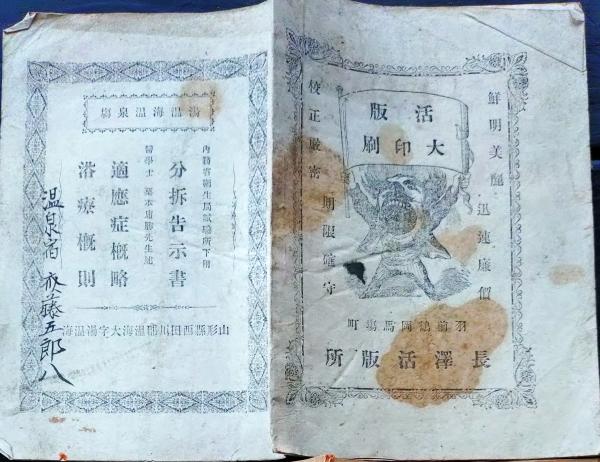 鮮明美麗
迅速廉價
活版
大印刷
期限確守
校正厳密
羽前鶴岡馬塲町
長澤活版所
湯温海温泉塲
内務省衛生局試驗所下付
分拆告示書
醫學士 先生述
適應症概略
浴療概則
山形縣西田川郡温海大字湯温海
温泉宿 斎藤五郎八